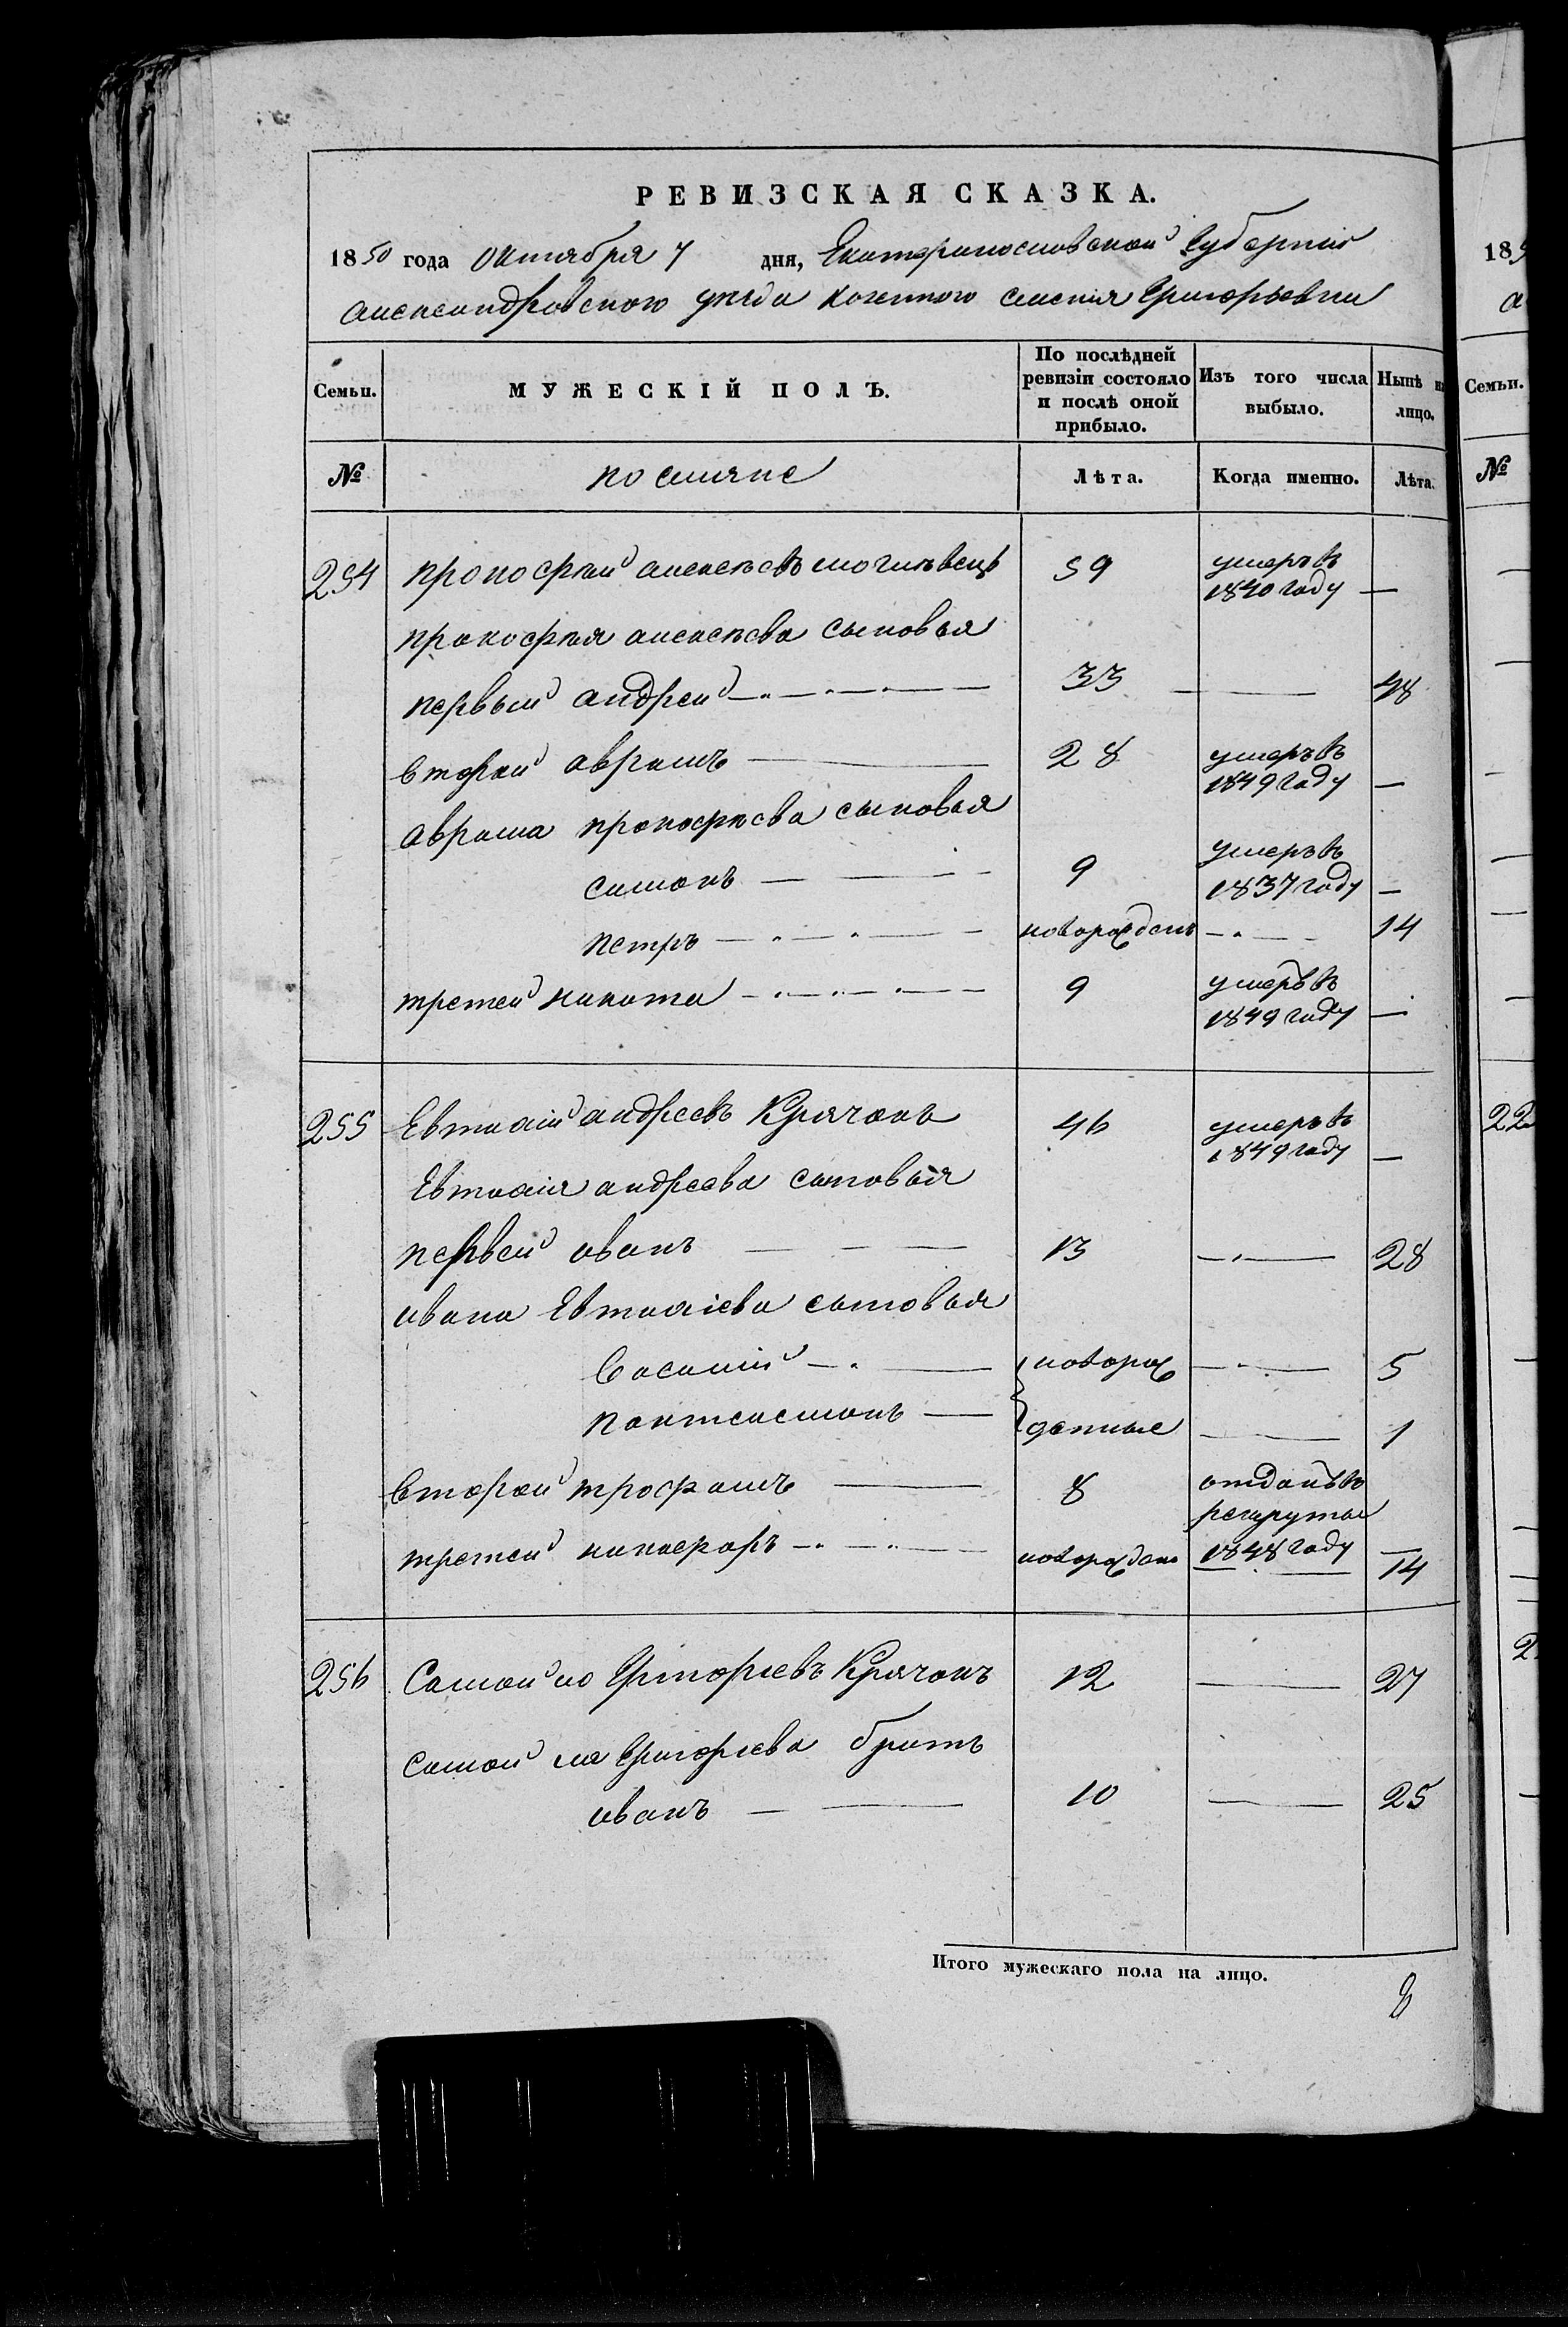 РЕВИЗСКАЯ СКАЗКА.
1850 года октября 7 дня, Екатеринославской губернии
александровского уезда казенного селения Григорьевки
Семьи. МУЖЕСКІЙ ПОЛЪ. По послѣдней ревизіи состояло и послѣ оной прибыло. Изъ того числа выбыло. Нынѣ на лицо.
№ поселяне Лѣта. Когда именно. Лѣта.
254 прокофий алексѣевъ могилевецъ 59 умеръ въ 1840 году —
прокофия алексѣева сыновья
первый андрей 33 — 48
второй аврамъ 28 умеръ въ 1849 году —
аврама прокофиева сыновья
симонъ 9 умеръ въ 1837 году —
петръ новорожденъ — 14
третей никита 9 умеръ въ 1849 году —
255 Евтихій андреевъ Крячокъ 46 умеръ въ 1849 году —
Евтихія андреева сыновья
первый иванъ 13 — 28
ивана Евтихіева сыновья
василий новорож — 5
пантелимонъ денные — 1
второй трофимъ 8 отданъ въ рекруты 1848 году —
третей никифоръ новорожденъ — 14
256 Самойло Григориевъ Крячокъ 12 — 27
самойла Григориева братъ
иванъ 10 — 25
Итого мужескаго пола на лицо. 8
185
а
Семьи.
№
22
2